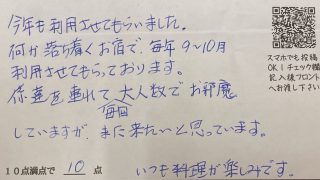 今年も利用させてもらいました。
何か落ち着くお宿で、毎年9~10月
利用させてもらっております。
孫達を連れて 大人数でお邪魔
毎回
していますが、また来たいと思っています。
10点満点で 10 点 いつも料理が楽しみです。
スマホでも投稿
OK!チェック欄
記入後フロント
へお渡し下さい